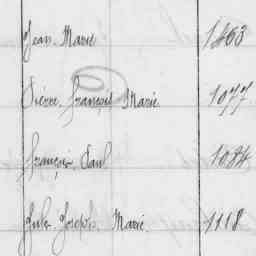 Jean Marie 1463
Pierre François Marie 1077
François Paul 1084
Jules Joseph Marie 1118